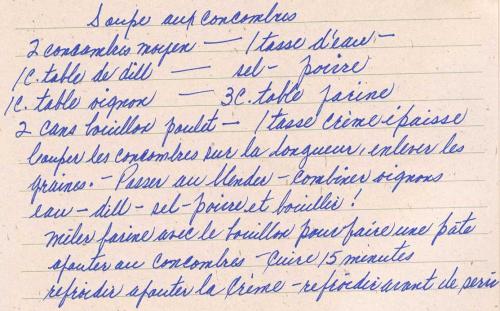 Soupe aux concombres
2 concombres moyen — 1 tasse d'eau -
1 c. table de dill — sel - poivre
1 c. table oignon — 3 c. table farine
2 cans bouillon poulet - 1 tasse crème épaisse
Couper les concombres sur la longueur, enlever les
graines. - Passer au blender - combiner oignons
eau - dill - sel - poivre et bouillir !
mêler farine avec le bouillon pour faire une pâte
ajouter au concombres - cuire 15 minutes
refroidir ajouter la crème - refroidir avant de servir